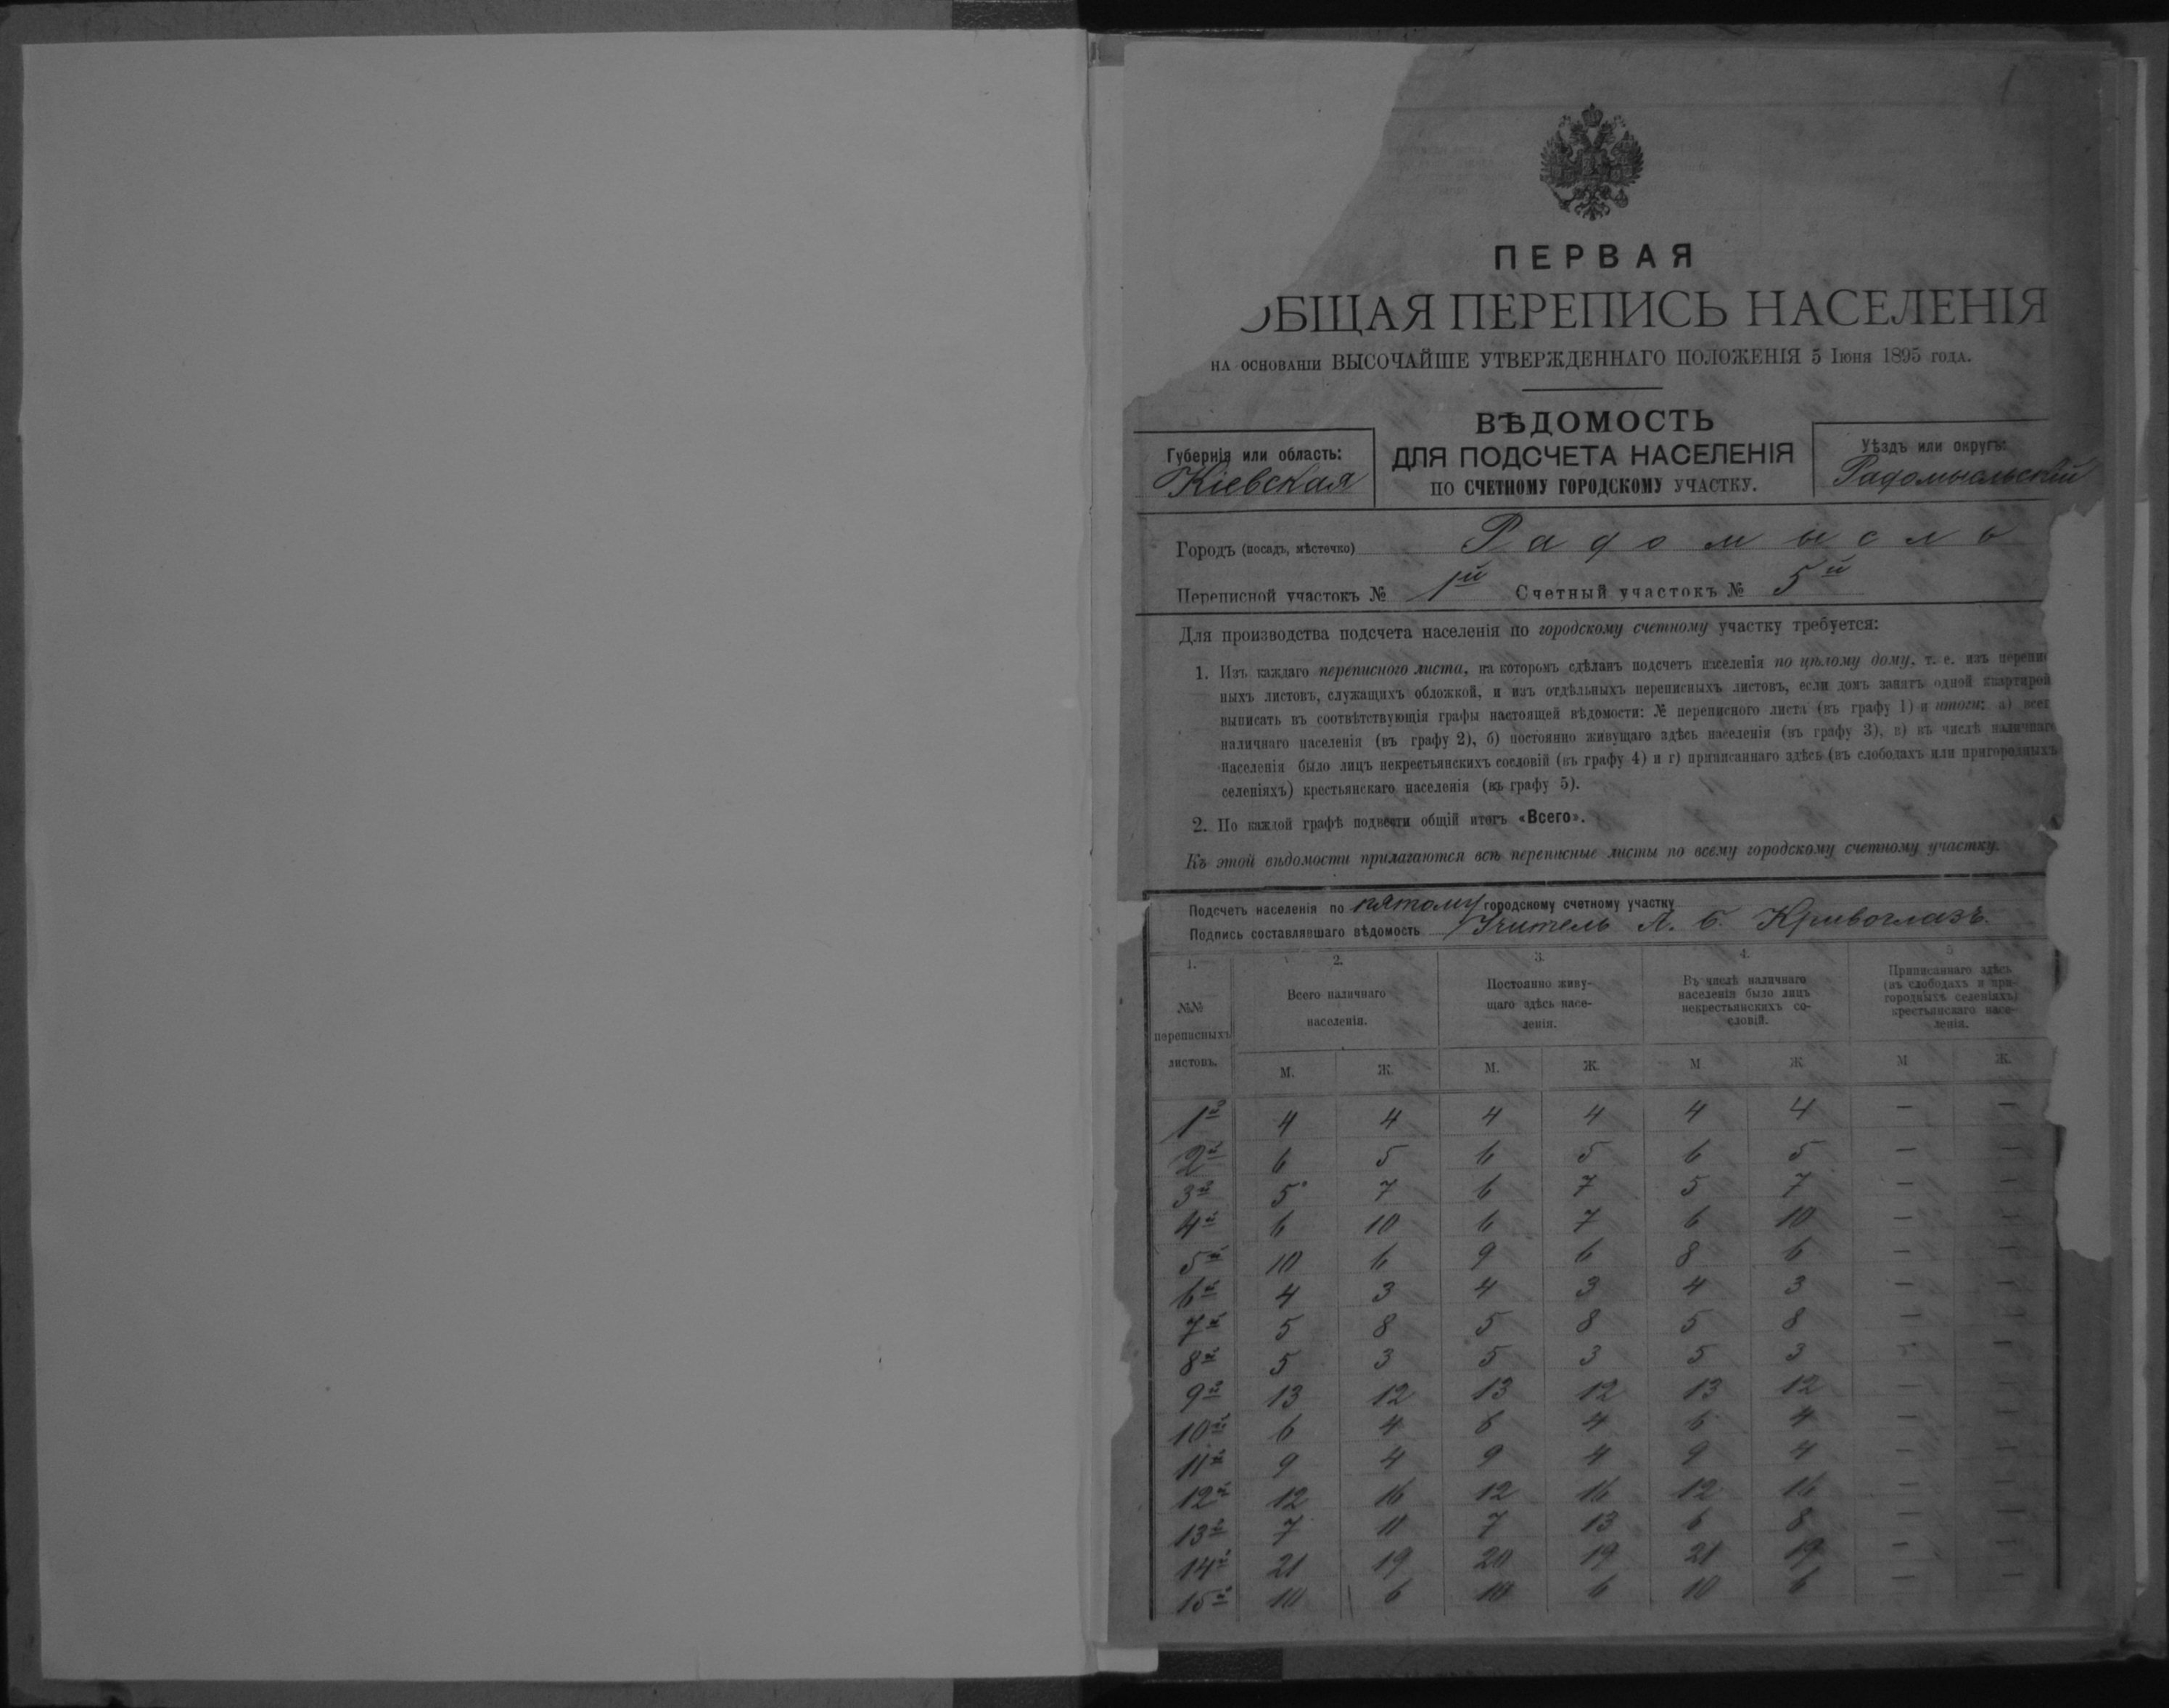 ПЕРВАЯ
ОБЩАЯ ПЕРЕПИСЬ НАСЕЛЕНІЯ
НА ОСНОВАНІИ ВЫСОЧАЙШЕ УТВЕРЖДЕННАГО ПОЛОЖЕНІЯ 5 Іюня 1895 года.
ВѢДОМОСТЬ
ДЛЯ ПОДСЧЕТА НАСЕЛЕНІЯ
ПО СЧЕТНОМУ ГОРОДСКОМУ УЧАСТКУ.
Губернія или область:
Кіевская
Уѣздъ или округъ:
Радомысльскій
Городъ (посадъ, мѣстечко) Радомысль
Переписной участокъ № 1й Счетный участокъ № 5й
Для производства подсчета населенія по городскому счетному участку требуется:
1. Изъ каждаго переписного листа, на которомъ сдѣланъ подсчетъ населенія по цѣлому дому, т. е. изъ перепи
ныхъ листовъ, служащихъ обложкой, и изъ отдѣльныхъ переписныхъ листовъ, если домъ занятъ одной квартирой
выписать въ соотвѣтствующія графы настоящей вѣдомости: № переписного листа (въ графу 1) и итоги: а) всег
наличнаго населенія (въ графу 2), б) постоянно живущаго здѣсь населенія (въ графу 3), в) въ числѣ наличнаго
населенія было лицъ некрестьянскихъ сословій (въ графу 4) и г) приписаннаго здѣсь (въ слободахъ или пригородныхъ
селеніяхъ) крестьянскаго населенія (въ графу 5).
2. По каждой графѣ подвести общій итогъ «Всего».
Къ этой вѣдомости прилагаются всѣ переписные листы по всему городскому счетному участку.
Подсчетъ населенія по пятому городскому счетному участку
Подпись составлявшаго вѣдомость Учитель А. Б. Кривоглазъ.
1. 2. 3. 4. 5
№№ переписныхъ листовъ.
Всего наличнаго населенія.
Постоянно живущаго здѣсь населенія.
Въ числѣ наличнаго населенія было лицъ некрестьянскихъ сословій.
Приписаннаго здѣсь (въ слободахъ и пригородныхъ селеніяхъ) крестьянскаго населенія.
М. Ж. М. Ж. М Ж М Ж.
1й 4 4 4 4 4 4 — —
2й 6 5 6 5 6 5 — —
3й 5 7 6 7 5 7 — —
4й 6 10 6 7 6 10 — —
5й 10 6 9 6 8 6 — —
6й 4 3 4 3 4 3 — —
7й 5 8 5 8 5 8 — —
8й 5 3 5 3 5 3 — —
9й 13 12 13 12 13 12 — —
10й 6 4 6 4 6 4 — —
11й 9 4 9 4 9 4 — —
12й 12 16 12 16 12 16 — —
13й 7 11 7 13 6 8 — —
14й 21 19 20 19 21 19 — —
15й 10 6 10 6 10 6 — —